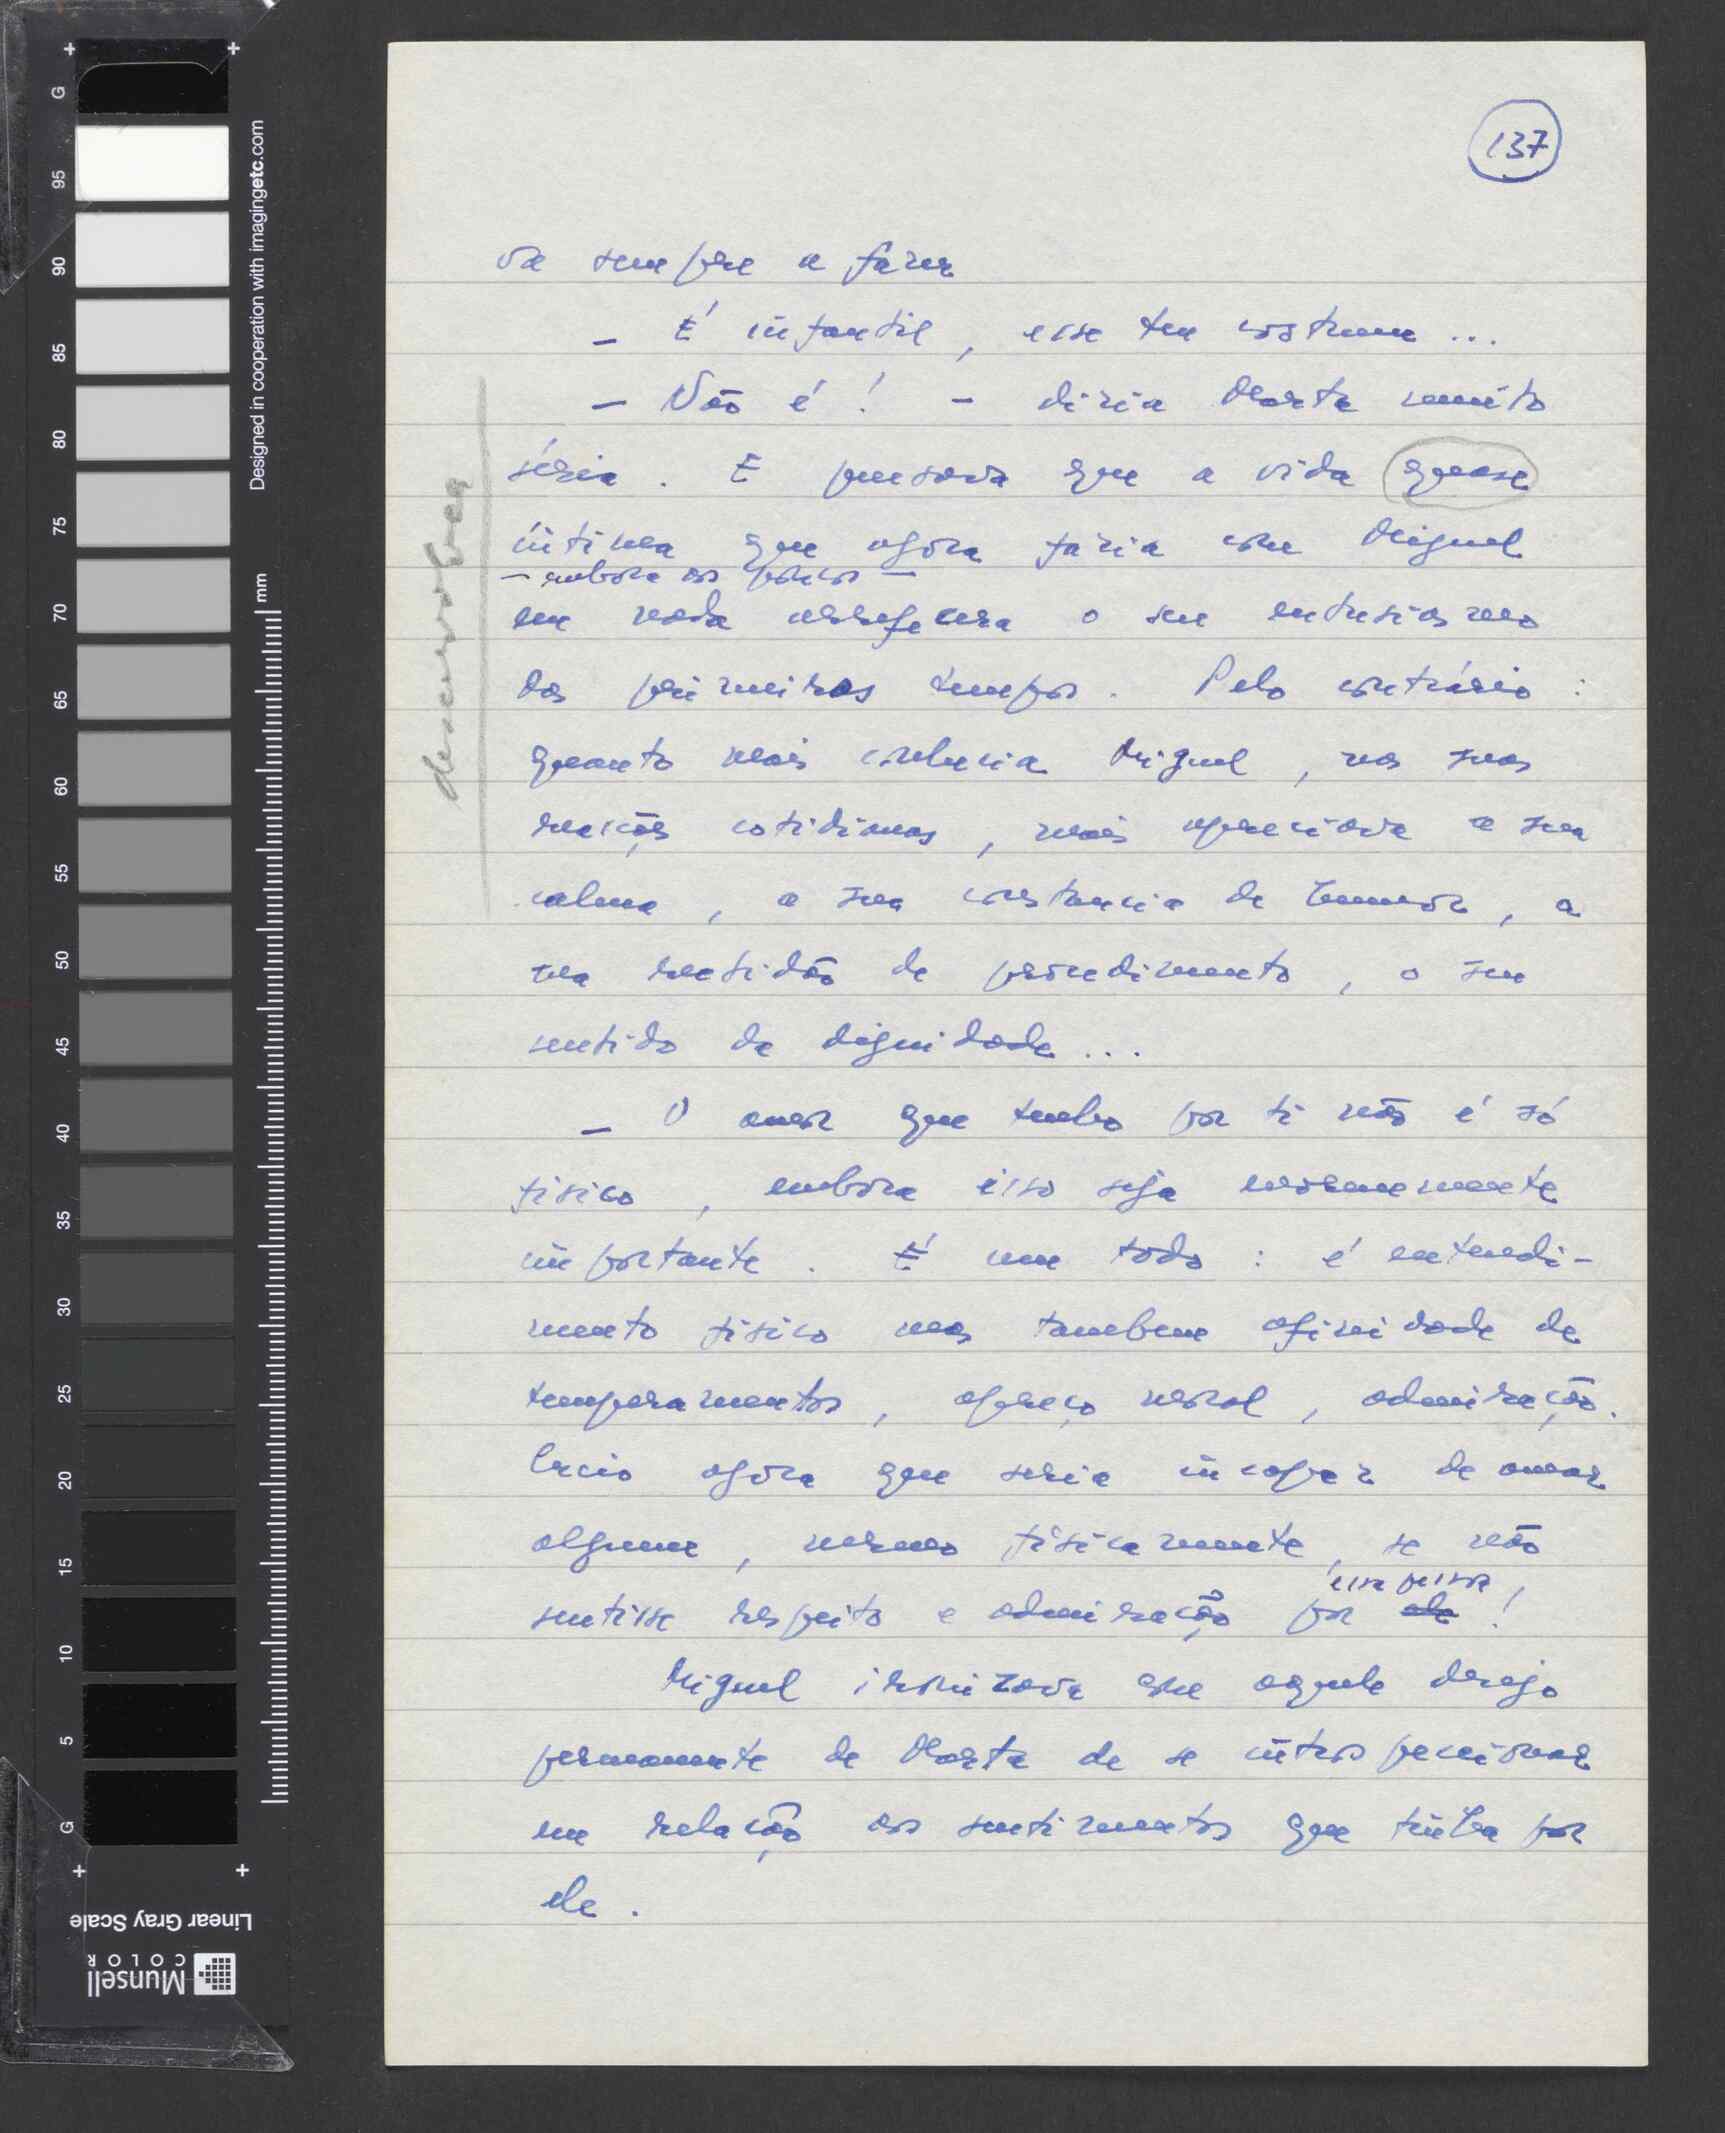 137
va sempre a fazer
– É infantil, esse teu costume ...
– Não é! – dizia Marta muito
séria. E pensava que a vida quase
íntima que agora fazia com Miguel
– embora aos poucos –
em nada arrefecera o seu entusiasmo
dos primeiros tempos. Pelo contrário:
quanto mais conhecia Miguel, nas suas
reacções cotidianas, mais apreciava a sua
calma, a sua constancia de humor, a
sua rectidão de procedimento, o seu
sentido de dignidade ...
– O amor que tenho por ti não é só
fisico, embora isso seja enormemente
importante. É um todo: é entendi-
mento fisico mas tambem afinidade de
temperamentos, apreço moral, admiração.
Creio agora que seria incapaz de amar
alguem, mesmo fisicamente, se não
essa pessoa
sentisse respeito e admiração por ela!
Miguel ironizava com aquele desejo
permanente de Marta de se introspeccionar
em relação aos sentimentos que tinha por
ele.
desenvolver
G
95
90
85
80
75
70
65
60
55
50
45
40
35
30
25
20
15
10
5
G
Designed in cooperation with imagingetc.com
mm
Linear Gray Scale
Munsell
COLOR